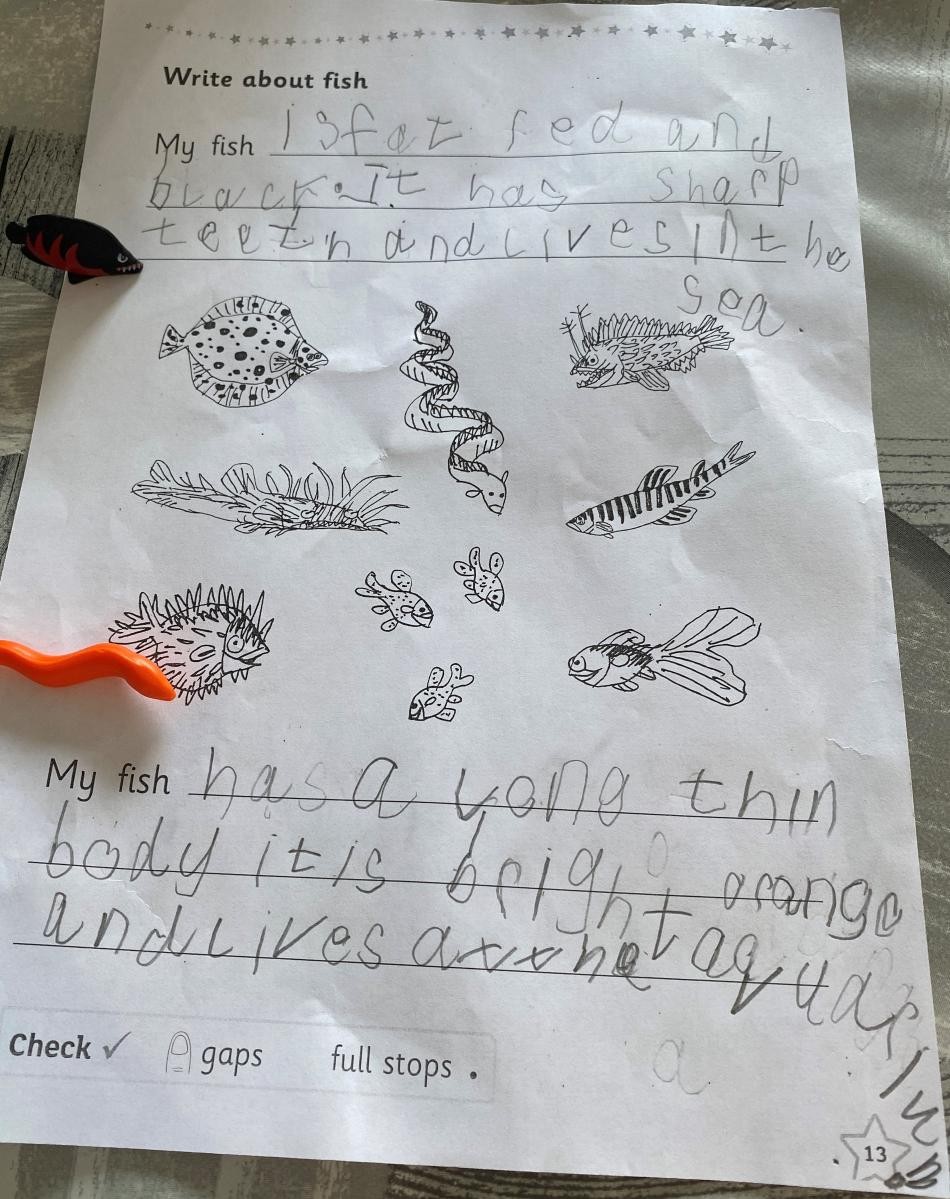 Write about fish
My fish is fat red and
black. It has sharp
teeth and lives in the
sea
My fish has a long thin
body it is bright orange
and lives at the aquarium
a
Check ✓ gaps full stops .
13